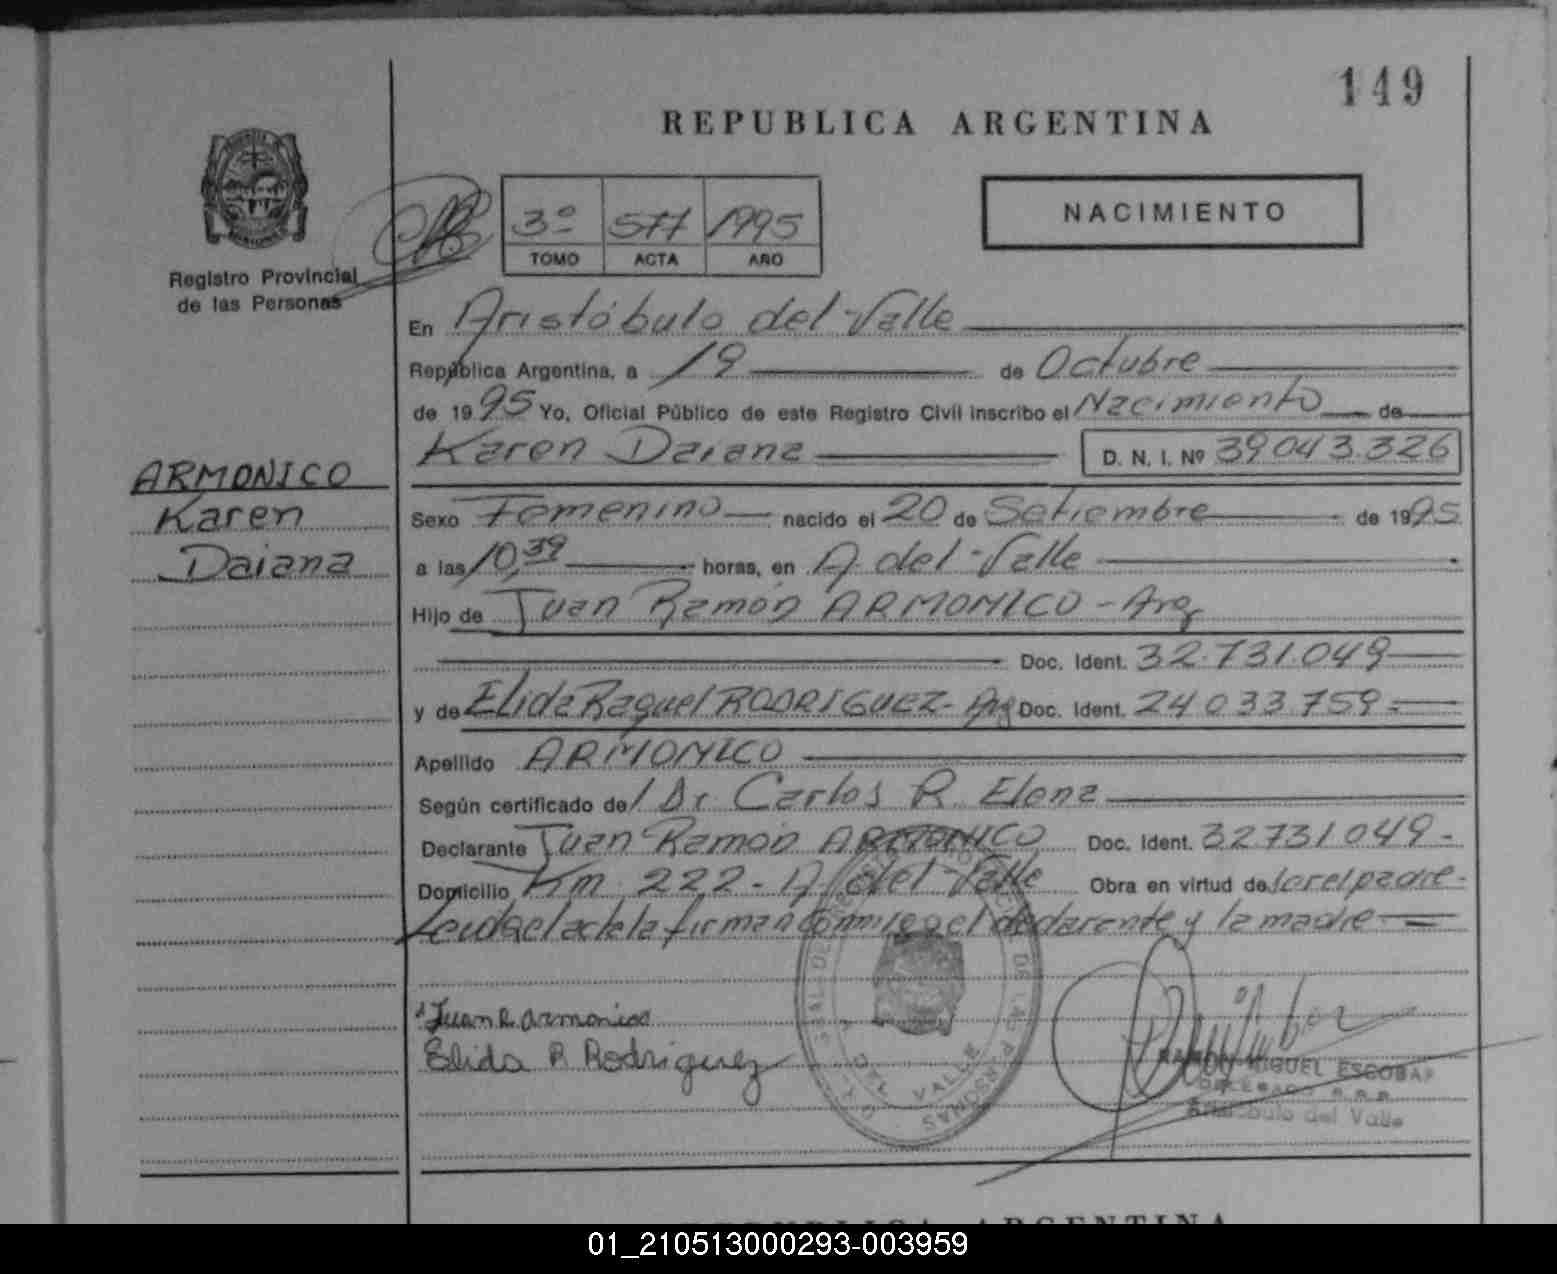 149
REPUBLICA ARGENTINA
Registro Provincial
de las Personas
3º 577 1995
TOMO ACTA AÑO
NACIMIENTO
ARMONICO
Karen
Daiana
En Aristóbulo del Valle
República Argentina, a 19 de Octubre
de 1995 Yo, Oficial Público de este Registro Civil inscribo el Nacimiento de
Karen Daiana D. N. I. Nº 39.043.326
Sexo Femenino nacido el 20 de Setiembre de 1995
a las 10,39 horas, en A. del Valle
Hijo de Juan Ramón ARMONICO - Arg
Doc. Ident. 32.731.049
y de Elida Raquel RODRIGUEZ - Arg Doc. Ident. 24.033.759
Apellido ARMONICO
Según certificado del Dr. Carlos R. Elena
Declarante Juan Ramón ARMONICO Doc. Ident. 32731.049
Domicilio Km 222 - A. del Valle Obra en virtud de ser el padre
Leida el acta la firman conmigo el declarante y la madre
Juan R armonico
Elida R Rodriguez
DE LAS PERSONAS
A. DEL VALLE
RAMON MIGUEL ESCOBAR
DELEGADO R.P.P.
Aristobulo del Valle
REPUBLICA ARGENTINA
01_210513000293-003959